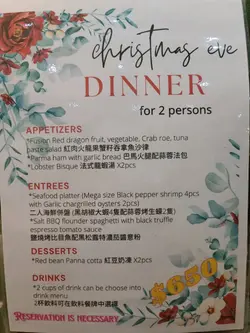 christmas eve
DINNER
for 2 persons
APPETIZERS
*Fusion Red dragon fruit, vegetable, Crab roe, tuna
paste salad 紅肉火龍果蟹籽吞拿魚沙律
*Parma ham with garlic bread 巴馬火腿配蒜蓉法包
*Lobster Bisque 法式龍蝦湯 X2pcs
ENTREES
*Seafood platter (Mega size Black pepper shrimp 4pcs
with Garlic chargrilled oysters 2pcs)
二人海鮮併盤 (黑胡椒大蝦4隻配蒜蓉烤生蠔2隻)
*Salt BBQ flounder spaghetti with black truffle
espresso tomato sauce
鹽燒烤比目魚配黑松露特濃茄醬意粉
DESSERTS
*Red bean Panna cotta 紅豆奶凍 X2pcs
DRINKS
*2 cups of drink can be choose into
drink menu
2杯飲料可在飲料餐牌中選擇
$650
RESERVATION IS NECESSARY